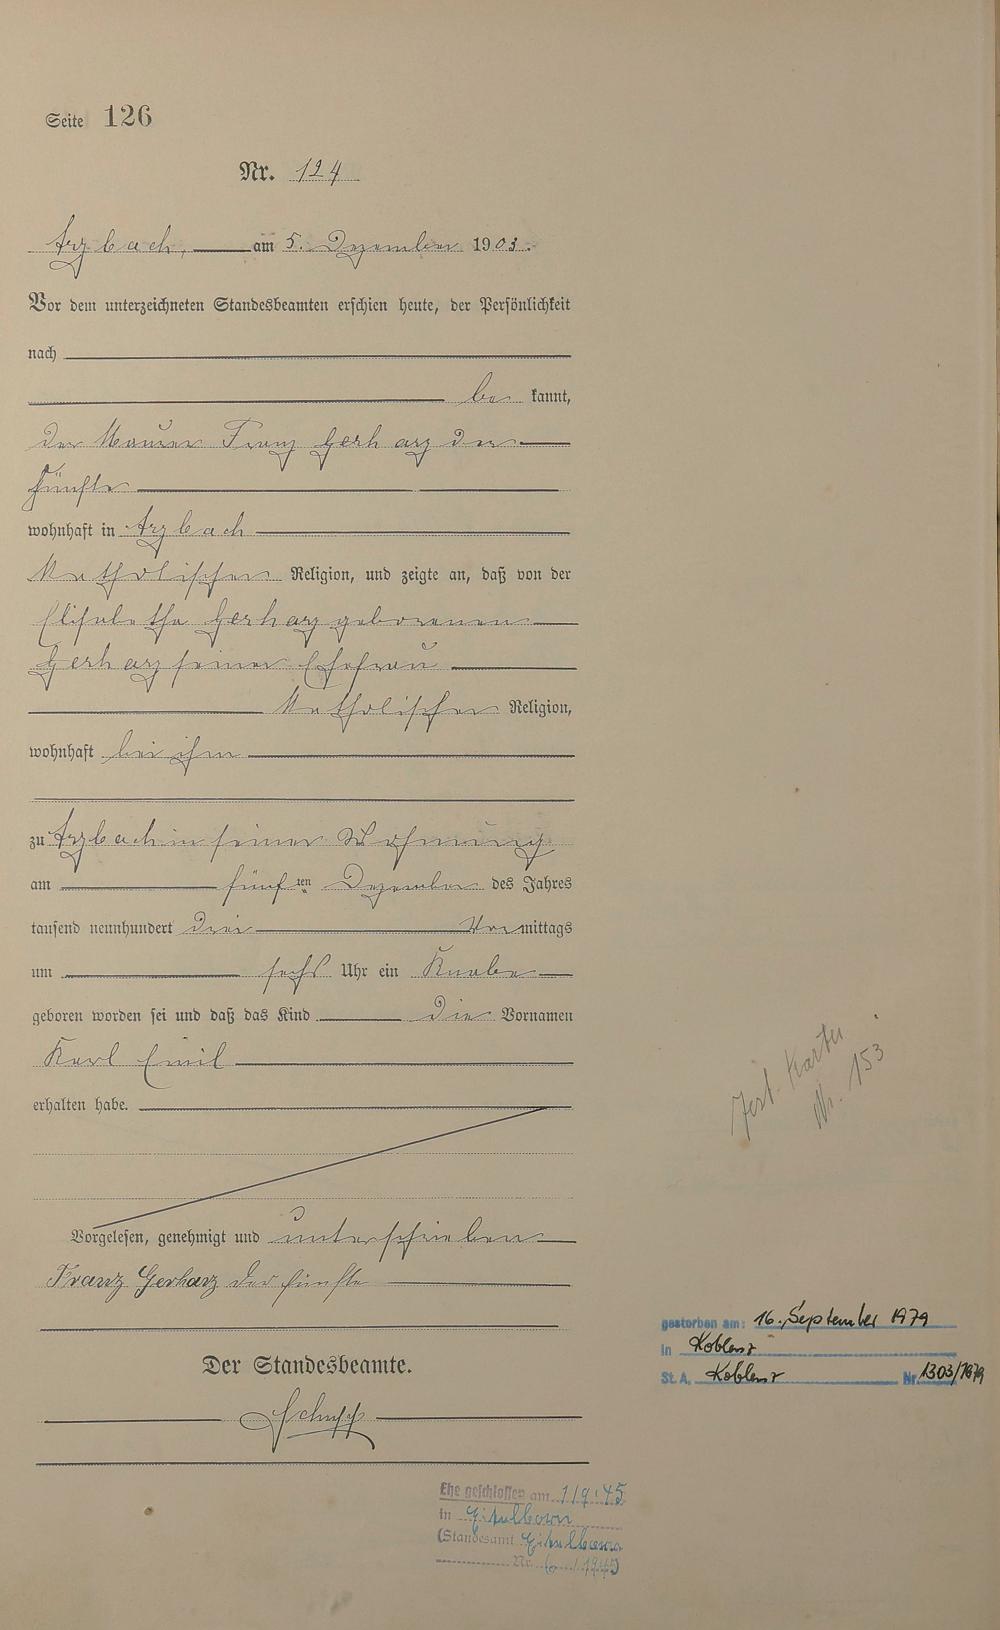 Seite 126
Nr. 124
Arzbach, am 5. Dezember 1903.
Vor dem unterzeichneten Standesbeamten erschien heute, der Persönlichkeit
nach
be kannt,
der Maurer Franz Gerharz der
fünfte
wohnhaft in Arzbach
katholischer Religion, und zeigte an, daß von der
Elisabetha Gerharz geborenen
Gerharz seiner Ehefrau
katholischer Religion,
wohnhaft bei ihm
zu Arzbach in seiner Wohnung
am fünften Dezember des Jahres
tausend neunhundert drei Vormittags
um sechs Uhr ein Knabe
geboren worden sei und daß das Kind die Vornamen
Karl Emil
erhalten habe.
Vorgelesen, genehmigt und unterschrieben
Franz Gerharz der fünfte
Der Standesbeamte.
Karte
Nr. 153
gestorben am: 16. September 1979
in Koblenz
St.A. Koblenz Nr. 1303/1979
Ehe geschlossen am 1.9.45
in Eitelborn
(Standesamt Eitelborn
Nr. 6 1945)